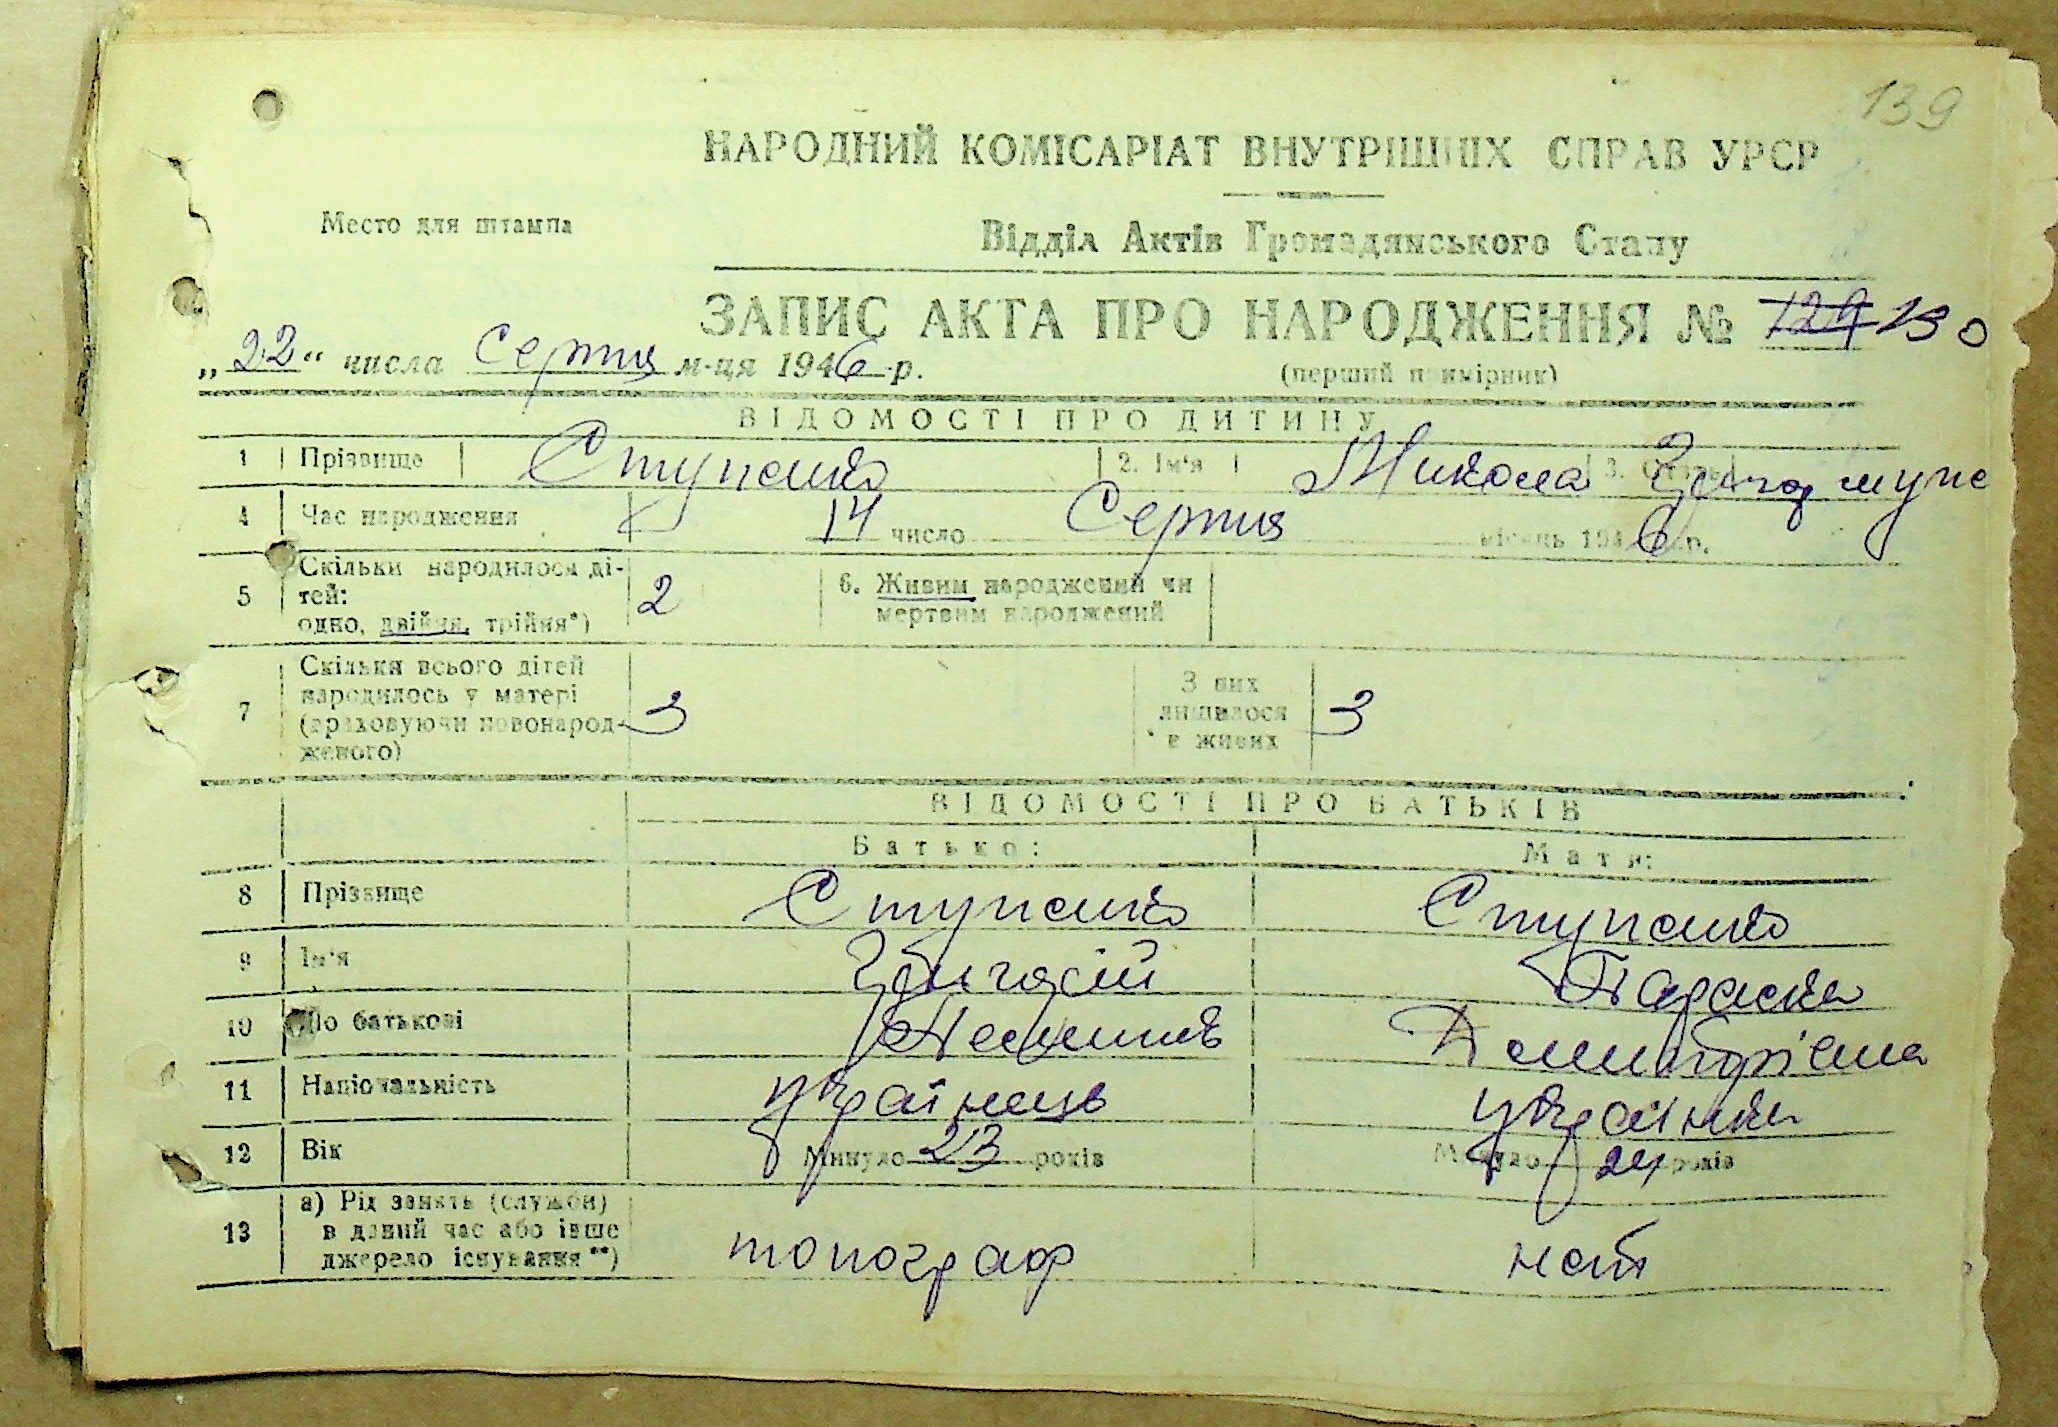 139
НАРОДНИЙ КОМІСАРІАТ ВНУТРІШНІХ СПРАВ УРСР
Место для штампа
Відділ Актів Громадянського Стану
ЗАПИС АКТА ПРО НАРОДЖЕННЯ № 129 130
„22“ числа Серпня м-ця 1946 р.
(перший примірник)
ВІДОМОСТІ ПРО ДИТИНУ
1 Прізвище Ступенко 2. Ім'я Микола 3.
4 Час народження 14 число Серпня місяць 1946 р.
5 Скільки народилося ді-
тей:
одно, двійня, трійня*) 2
6. Живим народжений чи
мертвим народжений
7 Скільки всього дітей
народилось у матері
(враховуючи новонарод-
женого) 3
З них
лишилося
в живих 3
ВІДОМОСТІ ПРО БАТЬКІВ
Батько: Мати:
8 Прізвище Ступенко Ступенко
9 Ім'я Григорій Параска
10 По батькові
11 Національність українець українка
12 Вік Минуло 23 років Минуло 24 років
13 а) Рід занять (служби)
в даний час або інше
джерело існування**) топограф